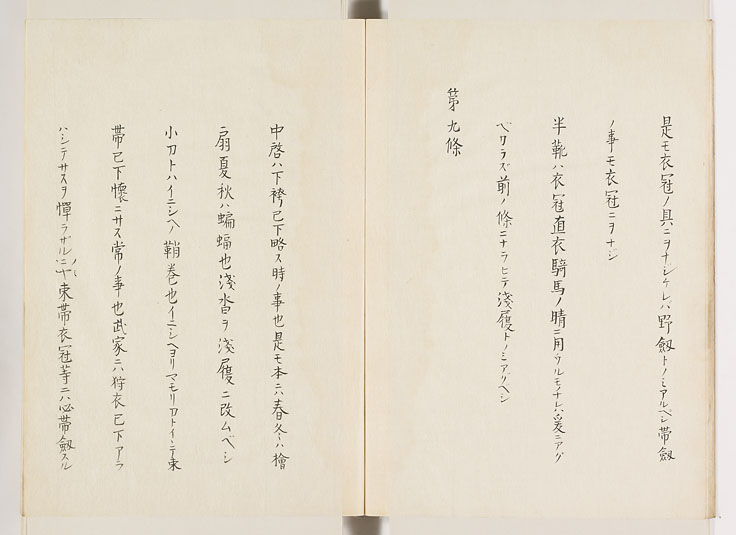 是モ衣冠ノ具ニヲナジケレバ野劔トノミアルベシ帶劔
ノ事モ衣冠ニヲナジ
半靴ハ衣冠直衣騎馬ノ晴ニ用ウルモノナレバ爰ニアグ
ベカラズ前ノ條ニナラヒテ淺履トノミアルベシ
第九條
中啓ハ下袴已下略ス時ノ事也是モ本ニハ春冬ハ檜
扇夏秋ハ蝙蝠也淺沓ヲ淺履ニ改ムベシ
小刀トハイニシヘノ鞘巻也イニシヘヨリマモリ刀トイヒテ束
帶已下懷ニサス常ノ事也武家ニハ狩衣已下アラ
ハシテサスヲ憚ラザルニヤ束帶衣冠等ニハ必帶劔スル